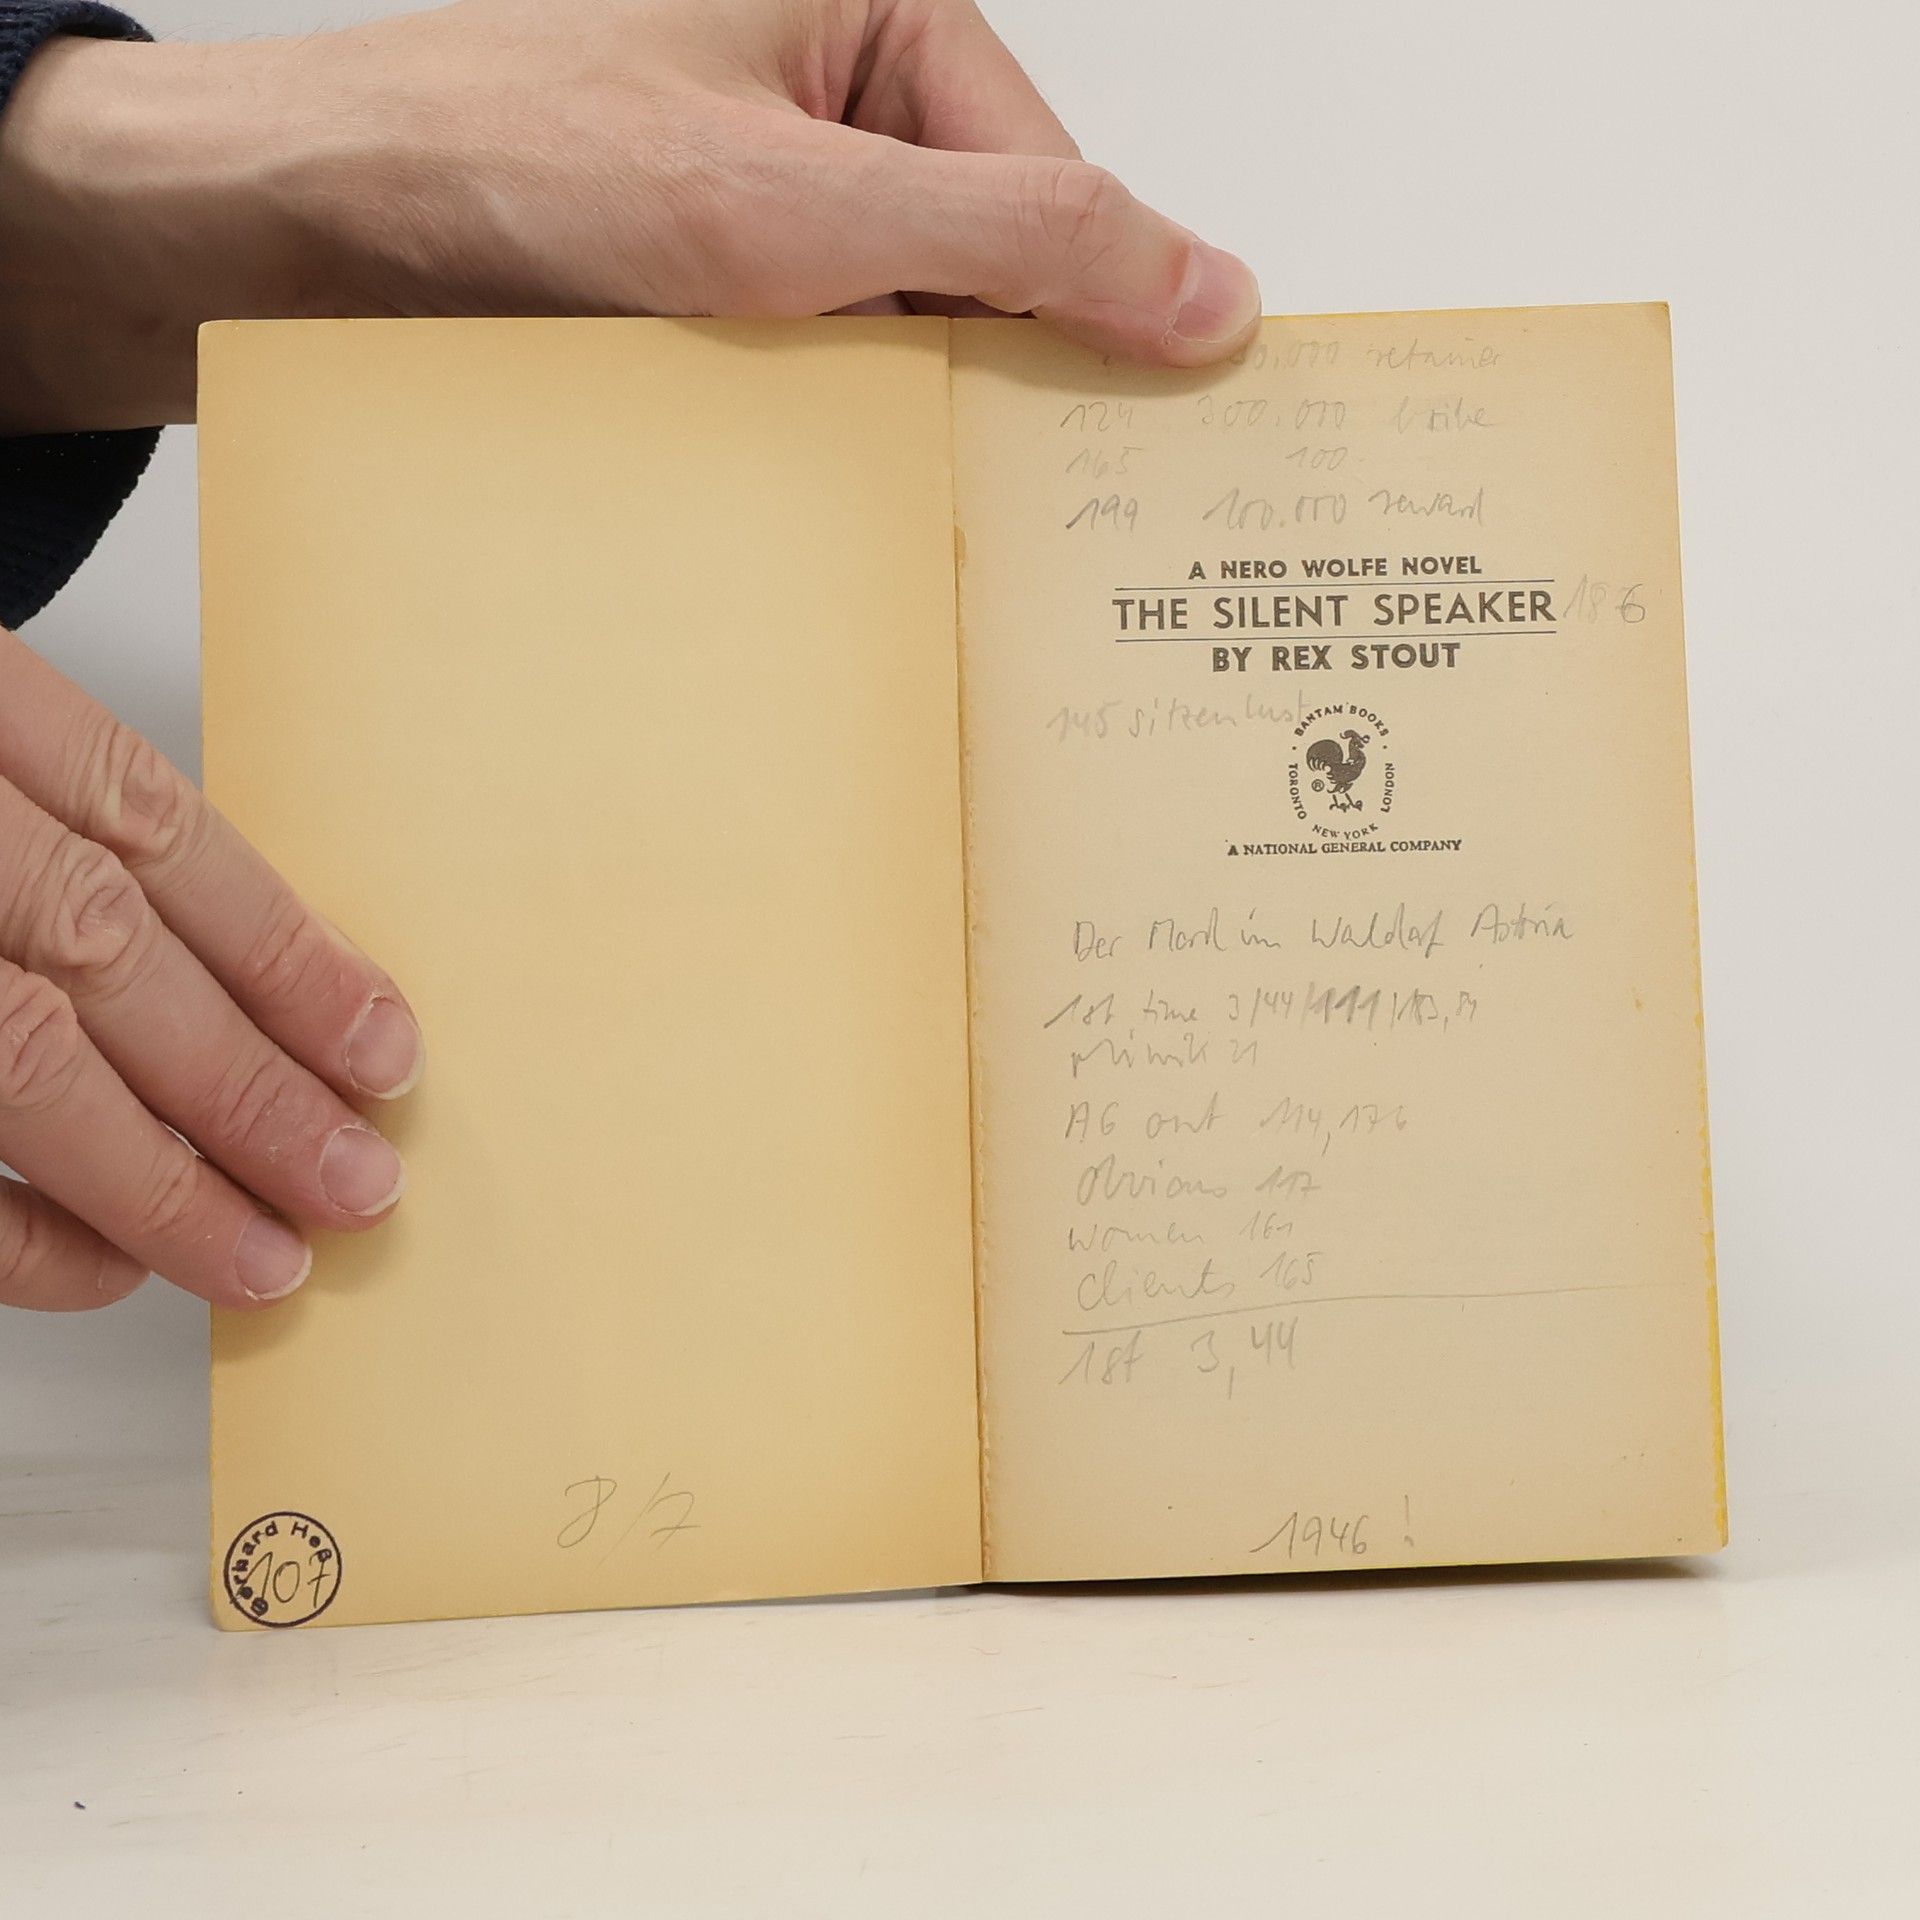 8/7
Gerhard Heß
107
0.000 retainer
124 300.000 bribe
165 100
199 100.000 reward
A NERO WOLFE NOVEL
THE SILENT SPEAKER 186
BY REX STOUT
145 sitzenlust
BANTAM BOOKS
TORONTO NEW YORK LONDON
®
A NATIONAL GENERAL COMPANY
Der Mord im Waldorf Astoria
1st time 3/44/111/183,
21
AG out 114, 176
Obvious 117
women 161
Clients 165
1st 3, 44
1946 !